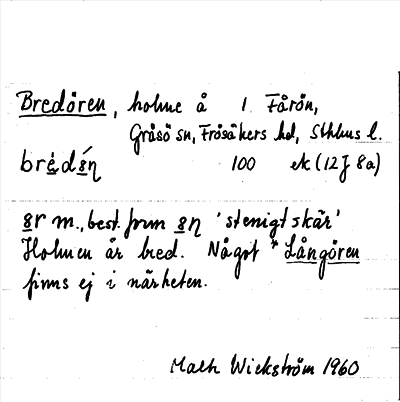 Bredören, holme å 1 Fårön,
Gräsö sn, Frösåkers hd, Sthlms l.
brèdə́ṇ 100 ek (12J 8a)
ər m., best. form əṇ 'stenigt skär'
Holmen är bred. Något *Långören
finns ej i närheten.
Math Wickström 1960